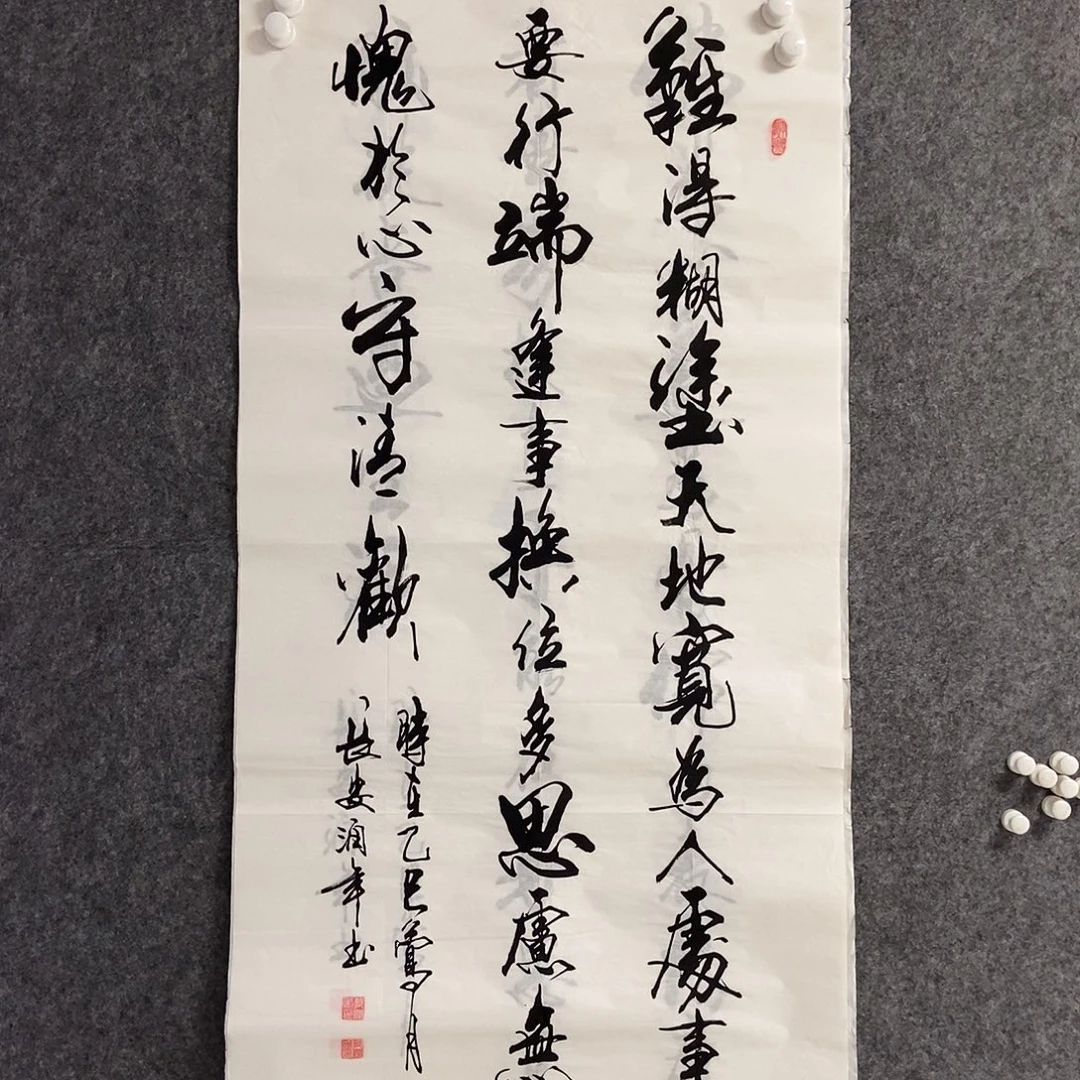 難得糊塗天地寬為人處事
要行端逢事換位多思慮無
愧於心守清歡
時在乙巳鶯月
長安年书